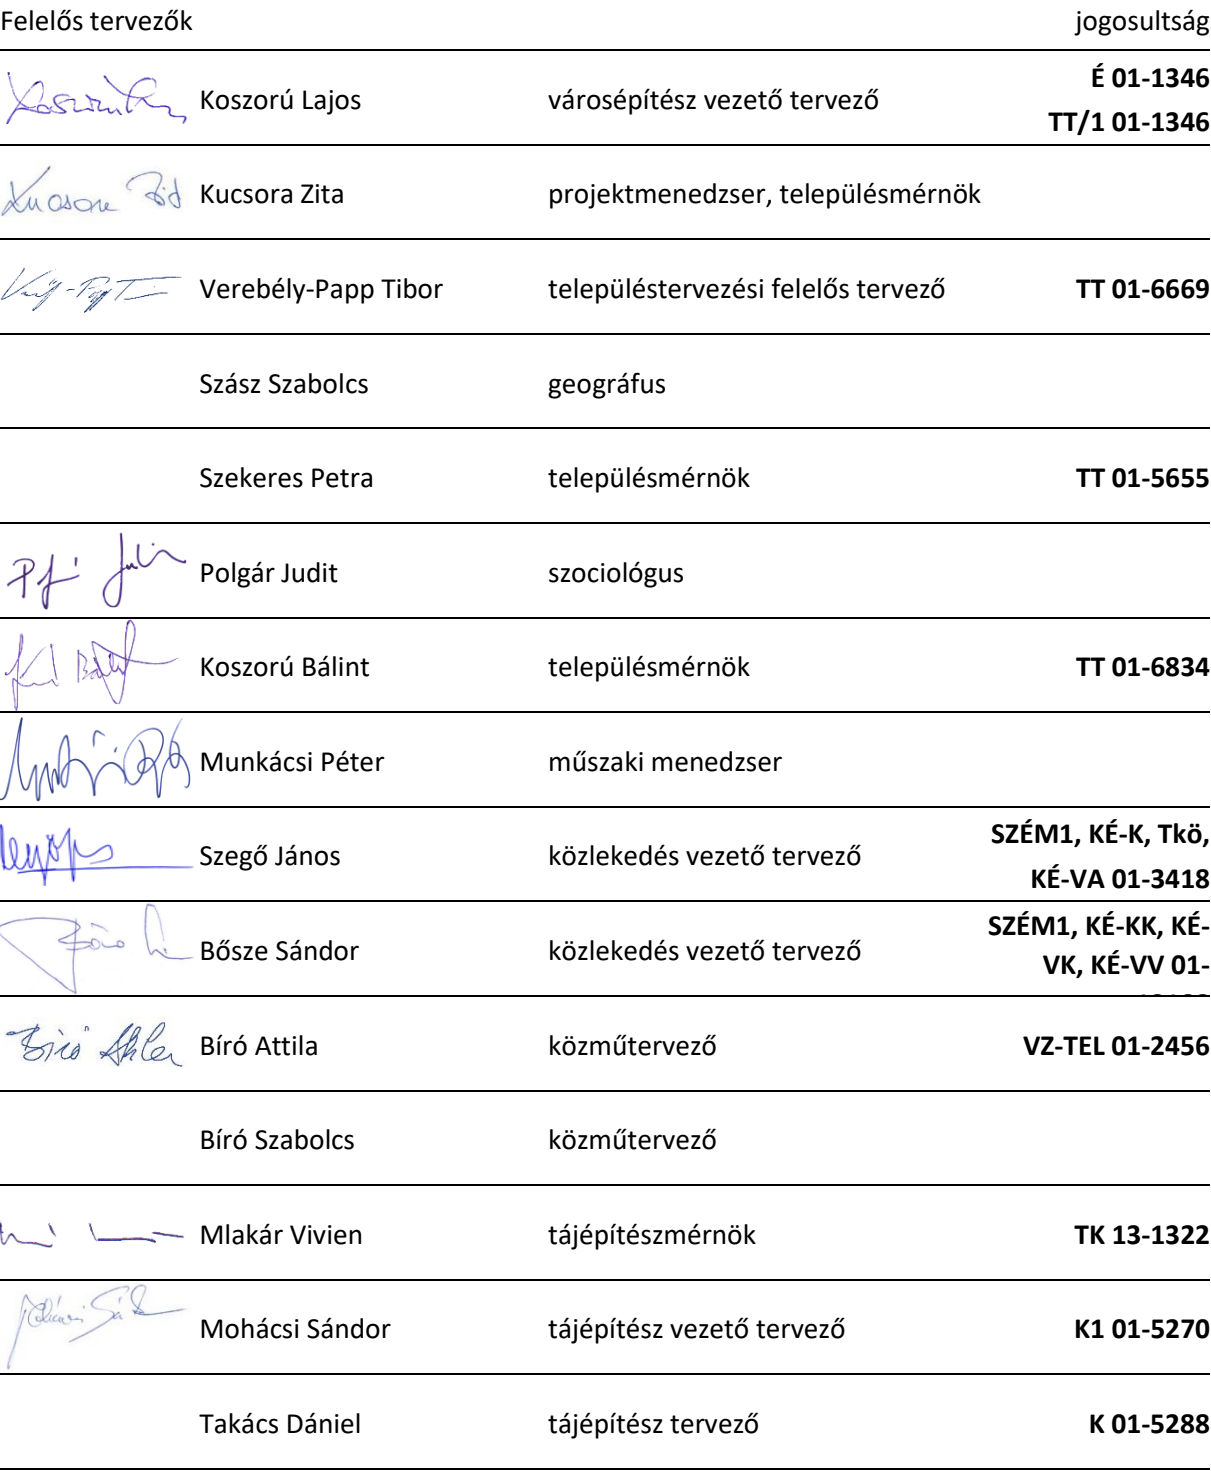 Felelős tervezők jogosultság
É 01-1346
Koszorú Lajos városépítész vezető tervező
TT/1 01-1346
Kucsora Zita projektmenedzser, településmérnök
Verebély-Papp Tibor településtervezési felelős tervező TT 01-6669
Szász Szabolcs geográfus
Szekeres Petra településmérnök TT 01-5655
Polgár Judit szociológus
Koszorú Bálint településmérnök TT 01-6834
Munkácsi Péter műszaki menedzser
SZÉM1, KÉ-K, Tkö,
Szegő János közlekedés vezető tervező
KÉ-VA 01-3418
SZÉM1, KÉ-KK, KÉ-
Bősze Sándor közlekedés vezető tervező
VK, KÉ-VV 01-
Bíró Attila közműtervező VZ-TEL 01-2456
Bíró Szabolcs közműtervező
Mlakár Vivien tájépítészmérnök TK 13-1322
Mohácsi Sándor tájépítész vezető tervező K1 01-5270
Takács Dániel tájépítész tervező K 01-5288